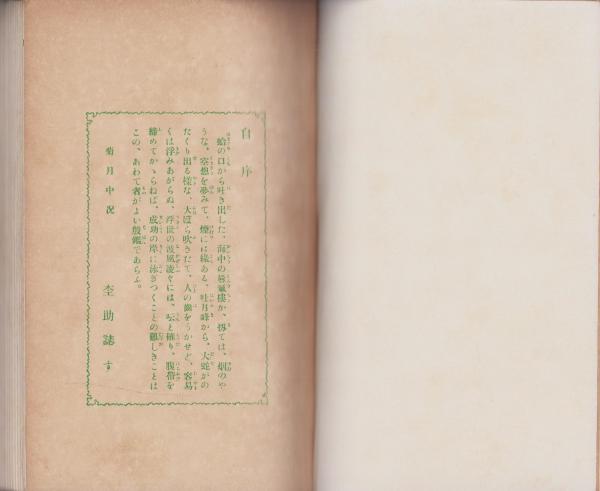 自序
蛤の口から吐き出した、海中の蜃氣樓か、扨ては、烟のや
うな、空想を夢みて、煙には縁ある、吐月峰から、大蛇がの
たくり出る樣な、大ぼら吹きたて、人の膽をうかせど、容易
くは浮みあがらぬ、浮世の波風凌ぐには、吃と確り、腹帶を
締めてかゝらねば、成功の岸に泳ぎつくことの難しきことは
この、あわて者がよい殷鑑であらふ。
菊月中浣
杢助誌す